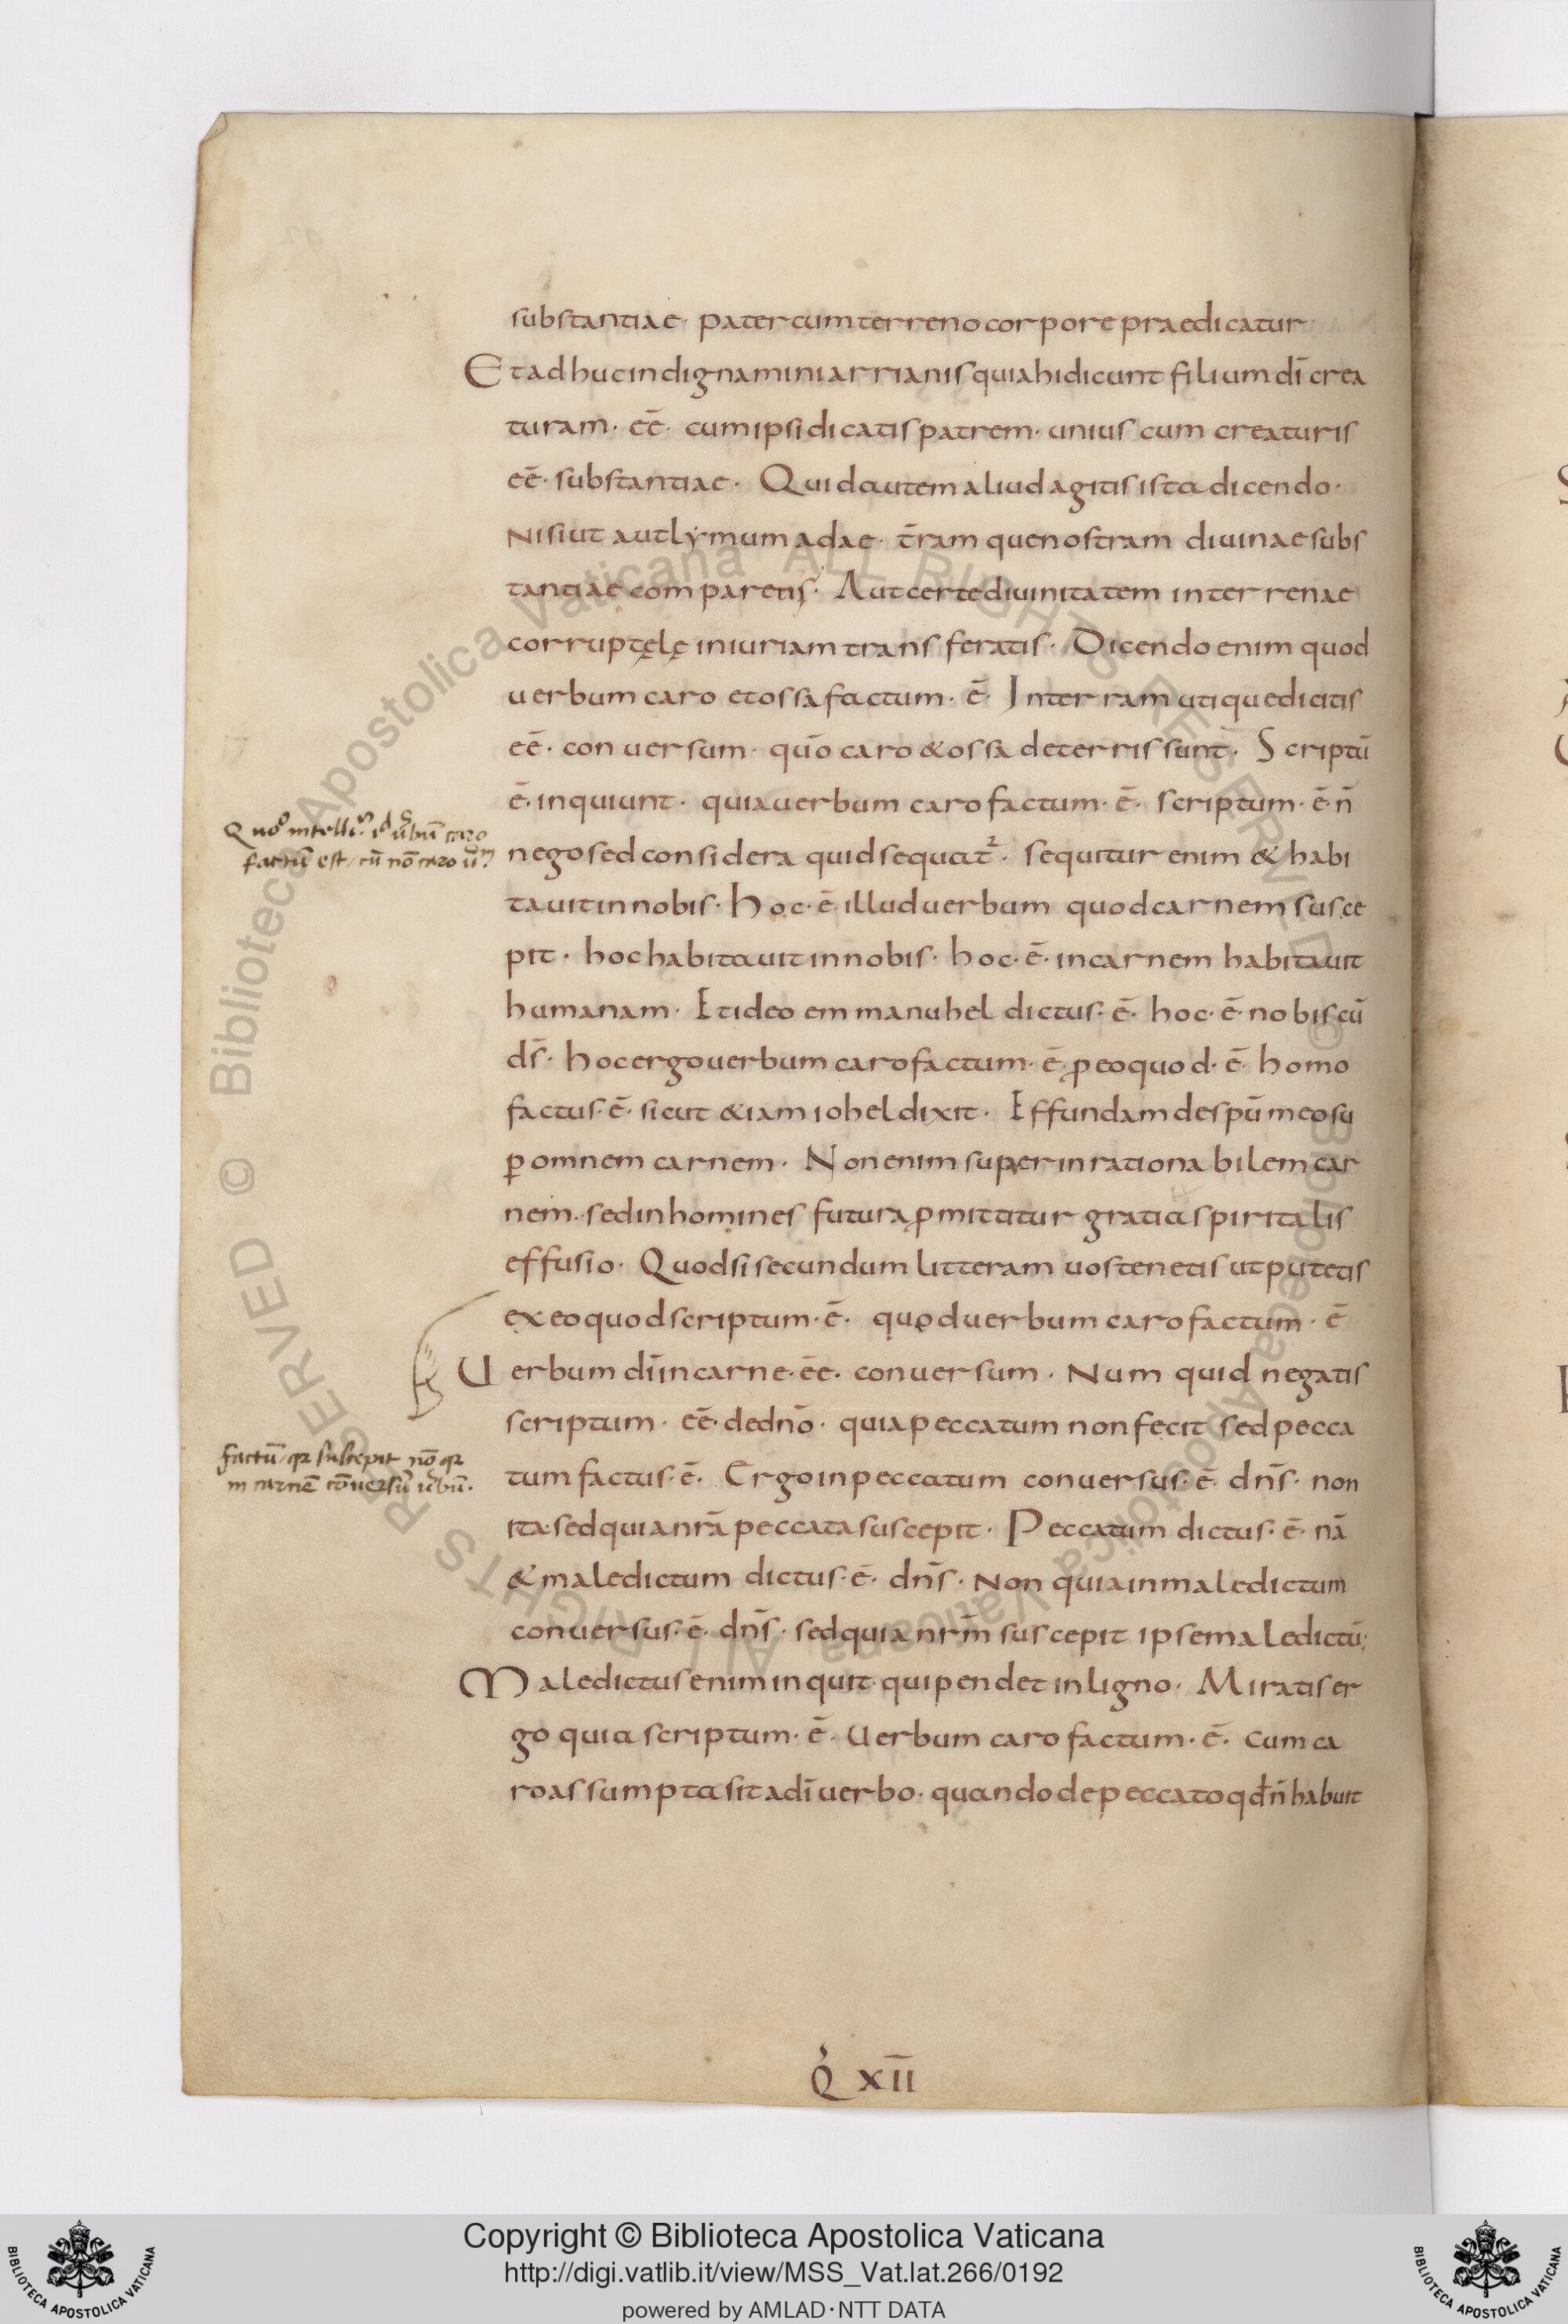 substantiae· pater cum terreno corpore praedicatur·
Et adhuc indignamini arrianis quia hi dicunt filium dī crea
turam· eē· cum ipsi dicatis patrem· unius cum creaturis
eē· substantiae· Quid autem aliud agitis ista dicendo·
Nisi ut aut lẏmum adae· t̄ram que nostram divinae subs
tantiae comparetis· Aut certe divinitatem in terrenae
corruptęlę iniuriam transferatis· Dicendo enim quod
verbum caro et ossa factum· ē· In terram utique dicitis
eē· conversum· quō caro & ossa de terris sunt· Scriptū
ē· inquiunt· quia verbum caro factum· ē· scriptum· ē· n̄
nego sed considera quid sequat̄· sequitur enim & habi
tavit in nobis· Hoc· ē· illud verbum quod carnem susce
pit· hoc habitavit in nobis· hoc· ē· in carnem habitavit
humanam· Et ideo emmanuhel dictus· ē· hoc· ē· nobiscū
ds̄· hoc ergo verbum caro factum· ē· ꝓ eo quod· ē· homo
factus· ē· sicut &iam iohel dixit· Effundam de spū meo su
ꝑ omnem carnem· Non enim super inrationabilem car
nem· sed in homines futura ꝓmittitur gratia spiritalis
effusio· Quod si secundum litteram vos tenetis ut putetis
ex eo quod scriptum· ē· quod verbum caro factum· ē
Verbum dī in carne· eē· conversum· Num quid negatis
scriptum· eē· de dnō· quia peccatum non fecit sed pecca
tum factus· ē· Ergo in peccatum conversus· ē· dn̄s· non
ita· sed quia nrā peccata suscepit· Peccatum dictus· ē· nā
& maledictum dictus· ē· dn̄s· Non quia in maledictum
conversus· ē· dn̄s· sed quia nrm̄ suscepit ipse maledictū·
Maledictus enim inquit· qui pendet in ligno· Miratis er
go quia scriptum· ē· Verbum caro factum· ē· cum ca
ro assumpta sit a dī verbo· quando de peccato qđ n̄ habuit
factū est / cū nō caro
factū / qꝛ suscepit nō qꝛ
in carnē cōversū
Q̓ XII
© Biblioteca Apostolica Vaticana ALL RIGHTS RESERVED
Copyright © Biblioteca Apostolica Vaticana
http://digi.vatlib.it/view/MSS_Vat.lat.266/0192
powered by AMLAD·NTT DATA
BIBLIOTECA APOSTOLICA VATICANA
BIBLIOTECA APOSTOLICA VATICANA